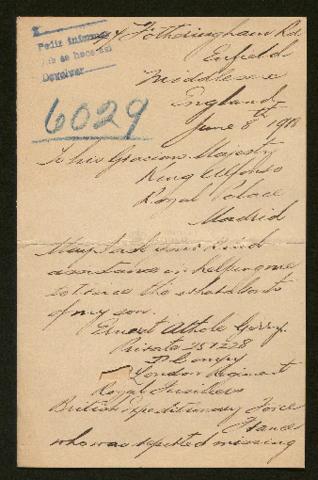 Fotheringham Rd
Enfield
Middlesex
England
June 8th 1918
6029
To his Gracious Majesty
King Alfonso
Royal Palace
Madrid
May I ask your kind
assistance in helping me
to trace the whereabouts
of my son.
Ernest Athole Gerry.
Private 251228
Compy
London Regiment
Royal Fusiliers
British Expeditionary Force
France
who was reported missing